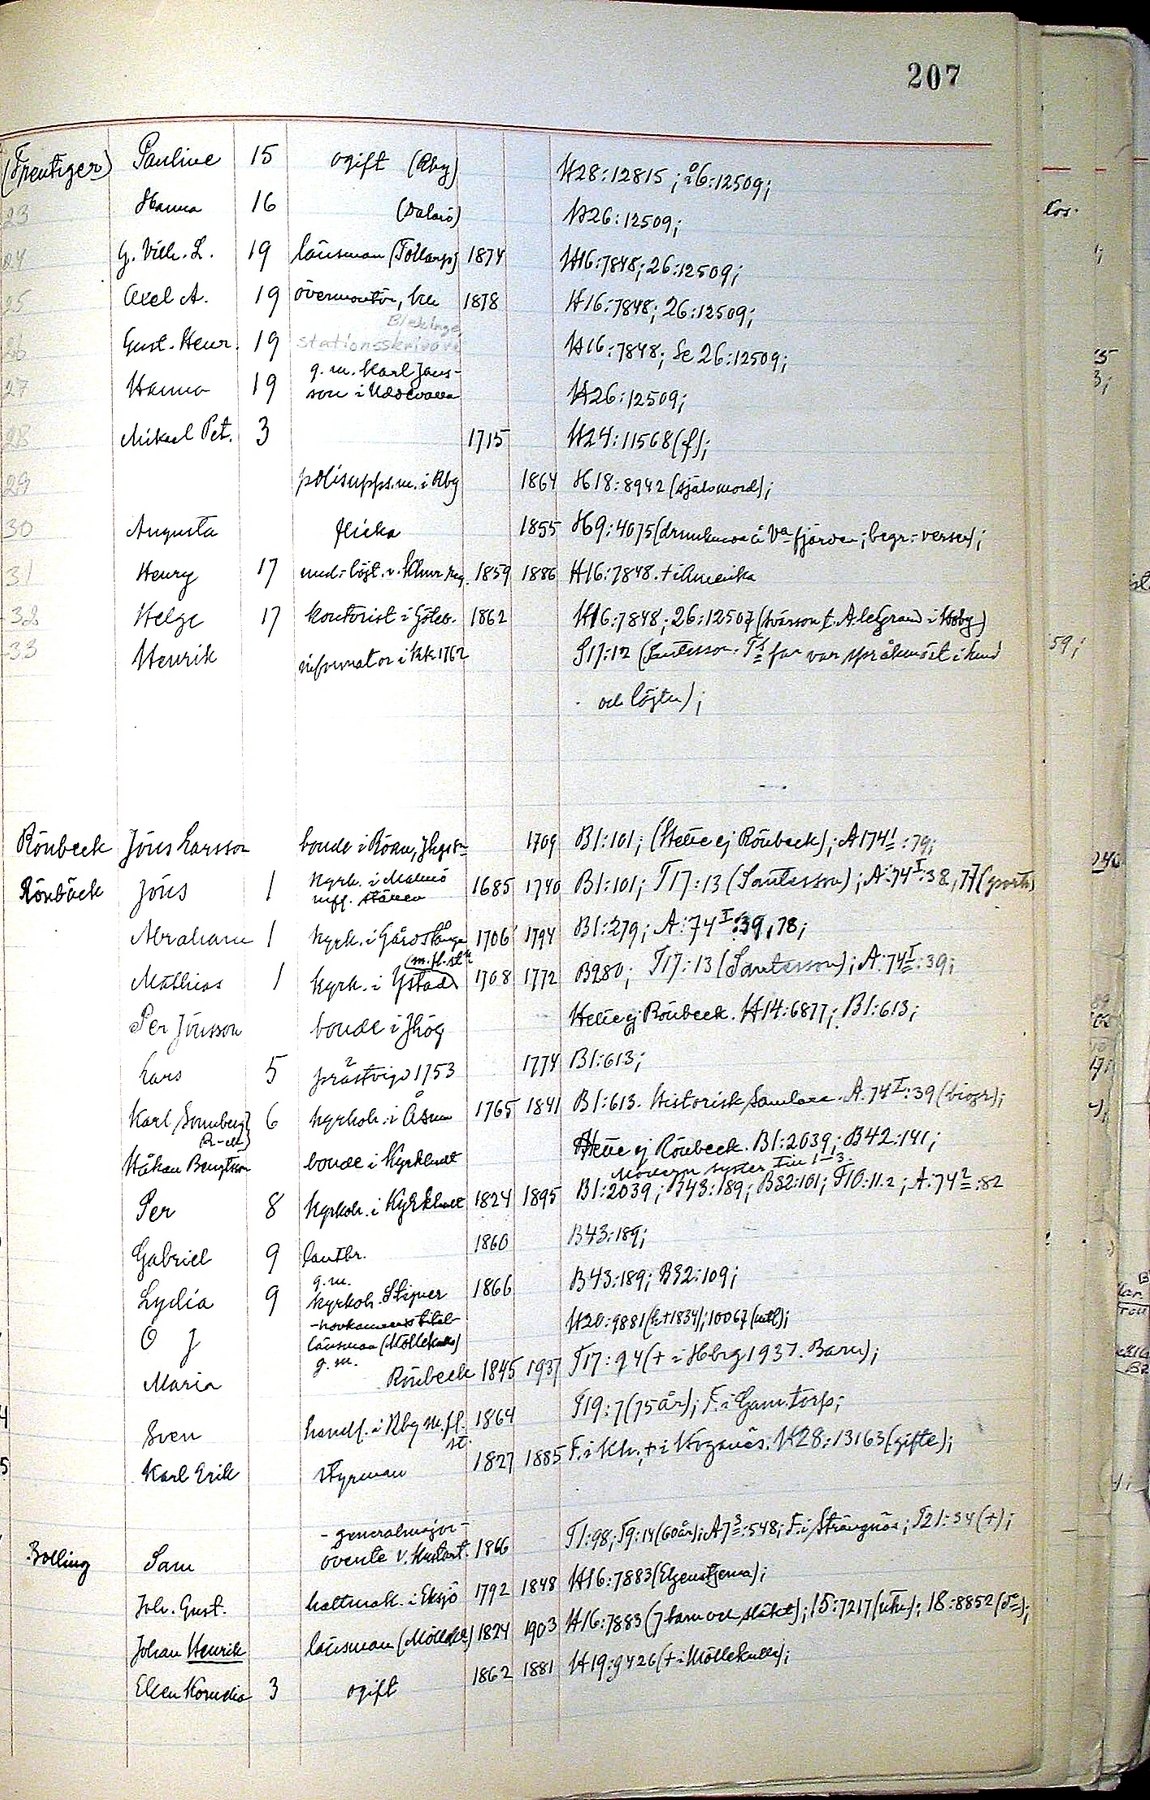 207
(Treutiger) Pauline 15 ogift (Rby) H28:12815; å6:12509;
23 Hanna 16 (Dalarö) H26:12509;
24 G. Vilh. L. 19 länsman (Tollarp) 1874 H16:7848; 26:12509;
25 Axel A. 19 övermontör, 1878 H16:7848; 26:12509;
Blekinge,
26 Gust. Henr. 19 stationsskrivare H16:7848; Se 26:12509;
g. m. Karl Jans-
27 Hanna 19 son i Uddevalla H26:12509;
28 Mikael Pet. 3 1715 H24:11568(f);
29 polisupps.m. i Rby 1864 H18:8942 (självmord);
30 Augusta flicka 1855 H9:4075 (drunknade i Va-fjärden; begr:-verser);
31 Henry 17 und.-löjt. v. reg. 1859 1886 H16:7848. † i Amerika
32 Helge 17 kontorist i Göteb. 1862 H16:7848; 26:12507 (svärson t. A. leGrand i Hoby)
33 Henrik informator i KK 1762 S17:12 (Santesson. far var språkmäst. i Lund
och löjtn);
Rönbeck Jöns Larsson bonde i 1709 B1:101; (Hette ej Rönbeck); A174¹:79;
Rönbäck Jöns 1 Kyrk. i Malmö 1685 1740 B1:101; T17:13 (Santesson); A:74I:38, 77
m.fl. ställen
Abraham 1 kyrk. i Gärdslånga 1706 1794 B1:279; A:74I:39, 78;
(m.fl. st.)
Mathias 1 kyrk. i Ystad 1708 1772 B280; T17:13 (Santesson); A:74I:39;
Per Jönsson bonde i Jhög Hette ej Rönbeck. H14:6877; B1:613;
Lars 5 prästvigd 1753 1774 B1:613;
Karl Sonnberg 6 kyrkoh. i Åsum 1765 1841 B1:613. Historisk Samlare. A:74I:39 (biogr);
(R-ck)
Håkan Bengtsson bonde i Kyrkhult Hette ej Rönbeck. B1:2039; B42:141;
Modern syster till 1-3.
Per 8 kyrkoh. i Kyrkhult 1824 1895 B1:2039; B43:189; B32:101; T10:11.2; A:74²:82
Gabriel 9 lantbr. 1860 B43:189;
g.m.
Lydia 9 kyrkoh. Stigner 1866 B43:189; B32:109;
O J länsman (Möllekulla) H20:9881 (h. †1834); 10067;
g.m.
Maria Rönbeck 1845 1937 T17:94 († i Hbrg 1937. Barn);
Sven handl. i Rby m.fl. st. 1864 T19:7 (75 år); F. i Gam.torp;
Karl Erik styrman 1827 1885 F. i Kh., † i Höganäs. H28:13163 (gifte);
- generalmajor -
Bolling Sam överste v. Kustart. 1866 T1:98; T9:14 (60 år); A7³:548; F. i Strängnäs; T21:34 (†);
Joh. Gust. hattmak. i Eksjö 1792 1848 H16:7883 (Elgenstjerna);
Johan Henrik länsman (Möllek.) 1824 1903 H16:7883 (7 barn och släkt); 15:7217; 18:8852;
Ellen Kornelia 3 ogift 1862 1881 H19:9426 († i Möllekulla);